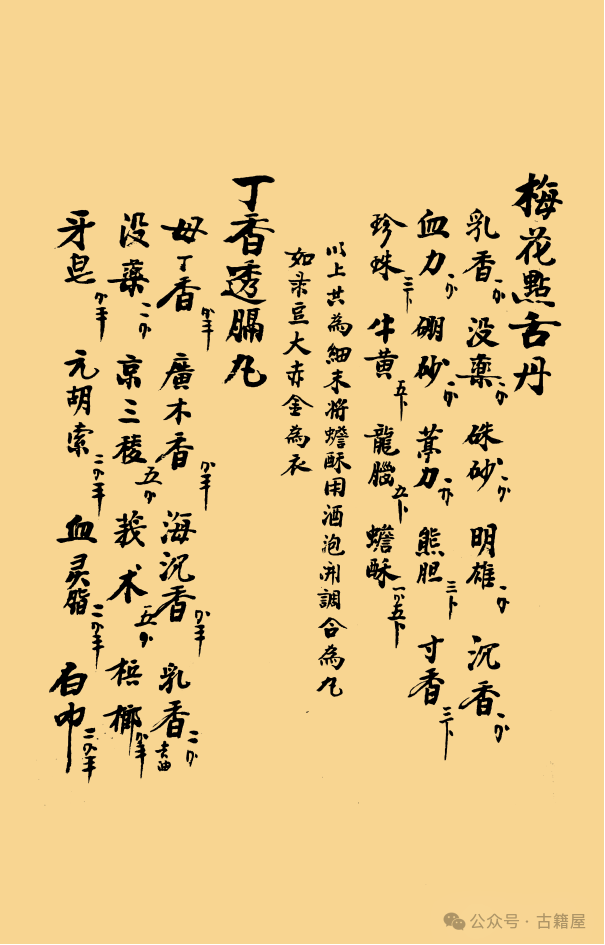 梅花點舌丹
乳香一分 没藥一分 硃砂一分 明雄一分 沉香一分
血力一分 硼砂一分 葶力一分 熊胆三卜 寸香三卜
珍珠三卜 牛黄五卜 龍腦五卜 蟾酥一分五卜
以上共為細末将蟾酥用酒泡開調合為丸
如菉豆大赤金為衣
丁香透膈丸
母丁香分半 廣木香分半 海沉香分半 乳香去油二分
没藥二分 京三稜五分 莪术五分 梹榔分半
牙皂分半 元胡索二分半 血灵脂二分半 石巾二分半
公众号·古籍屋